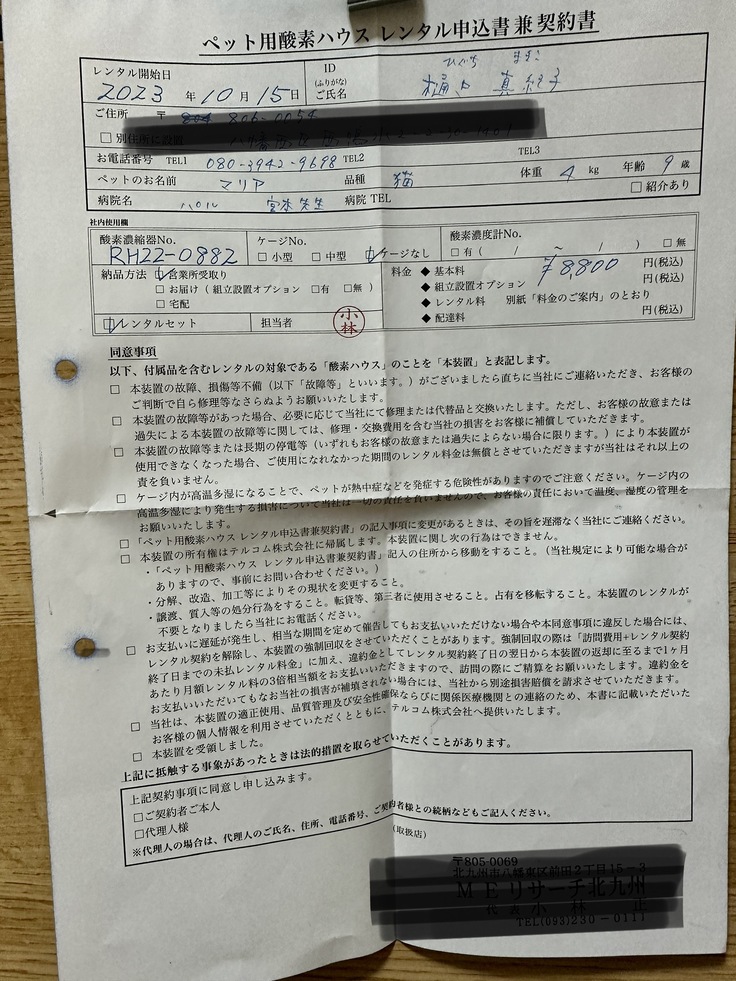 ペット用酸素ハウス レンタル申込書 兼 契約書
レンタル開始日
2023 年 10 月 15 日
ID
(ふりがな)
ご氏名
ひぐち
樋口 真紀子
ご住所 〒
□ 別住所に設置
お電話番号 TEL1 080-3942-9698 TEL2 TEL3
ペットのお名前 マリア 品種 猫 体重 4 kg 年齢 9 歳
病院名 病院 TEL □ 紹介あり
社内使用欄
酸素濃縮器No.
RH22-0882
ケージNo.
□ 小型 □ 中型 ☑ケージなし
酸素濃度計No.
□ 有 ( / ~ / ) □ 無
納品方法 ☑営業所受取り
□ お届け ( 組立設置オプション □有 □無 )
□ 宅配
料金 ◆ 基本料 ¥8,800 円(税込)
◆ 組立設置オプション 円(税込)
◆ レンタル料 別紙「料金のご案内」のとおり
◆ 配達料 円(税込)
☑レンタルセット 担当者 小林
同意事項
以下、付属品を含むレンタルの対象である「酸素ハウス」のことを「本装置」と表記します。
□ 本装置の故障、損傷等不備（以下「故障等」といいます。）がございましたら直ちに当社にご連絡いただき、お客様の
ご判断で自ら修理等なさらぬようお願いいたします。
□ 本装置の故障等があった場合、必要に応じて当社にて修理または代替品と交換いたします。ただし、お客様の故意または
過失による本装置の故障等に関しては、修理・交換費用を含む当社の損害をお客様に補償していただきます。
□ 本装置の故障等または長期の停電等（いずれもお客様の故意または過失によらない場合に限ります。）により本装置が
使用できなくなった場合、ご使用になれなかった期間のレンタル料金は無償とさせていただきますが当社はそれ以上の
責を負いません。
□ ケージ内が高温多湿になることで、ペットが熱中症などを発症する危険性がありますのでご注意ください。ケージ内の
高温多湿により発生する損害について当社は一切の責任を負いませんので、お客様の責任において温度、湿度の管理を
お願いいたします。
□「ペット用酸素ハウス レンタル申込書兼契約書」の記入事項に変更があるときは、その旨を遅滞なく当社にご連絡ください。
□ 本装置の所有権はテルコム株式会社に帰属します。本装置に関し次の行為はできません。
・「ペット用酸素ハウス レンタル申込書兼契約書」記入の住所から移動をすること。（当社規定により可能な場合が
ありますので、事前にお問い合わせください。）
・分解、改造、加工等によりその現状を変更すること。
・譲渡、質入等の処分行為をすること。転貸等、第三者に使用させること。占有を移転すること。本装置のレンタルが
不要となりましたら当社にお電話ください。
□ お支払いに遅延が発生し、相当な期間を定めて催告してもお支払いいただけない場合や本同意事項に違反した場合には、
レンタル契約を解除し、本装置の強制回収をさせていただくことがあります。強制回収の際は「訪問費用+レンタル契約
終了日までの未払レンタル料金」に加え、違約金としてレンタル契約終了日の翌日から本装置の返却に至るまで1ヶ月
あたり月額レンタル料の3倍相当額をお支払いいただきますので、訪問の際にご精算をお願いいたします。違約金を
お支払いいただいてもなお当社の損害が補填されない場合には、当社から別途損害賠償を請求させていただきます。
□ 当社は、本装置の適正使用、品質管理及び安全性確保ならびに関係医療機関との連絡のため、本書に記載いただいた
お客様の個人情報を利用させていただくとともに、テルコム株式会社へ提供いたします。
□ 本装置を受領しました。
上記に抵触する事象があったときは法的措置を取らせていただくことがあります。
上記契約事項に同意し申し込みます。
□ご契約者ご本人
□代理人様
※代理人の場合は、代理人のご氏名、住所、電話番号、ご契約者様との続柄などもご記入ください。
(取扱店)
〒805-0069
北九州市八幡東区前田2丁目15-3
MEリサーチ北九州
TEL(093)230-0111